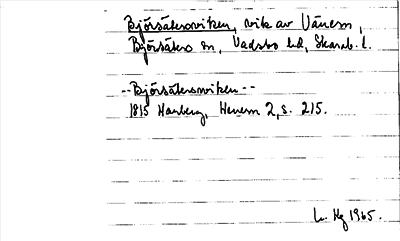 Björsätersviken, vik av Vänern,
Björsäters sn, Vadsbo hd, Skarab. l.
--Björsätersviken--
1815 Marberg, Henern 2, s. 215.
L. Hg 1965.